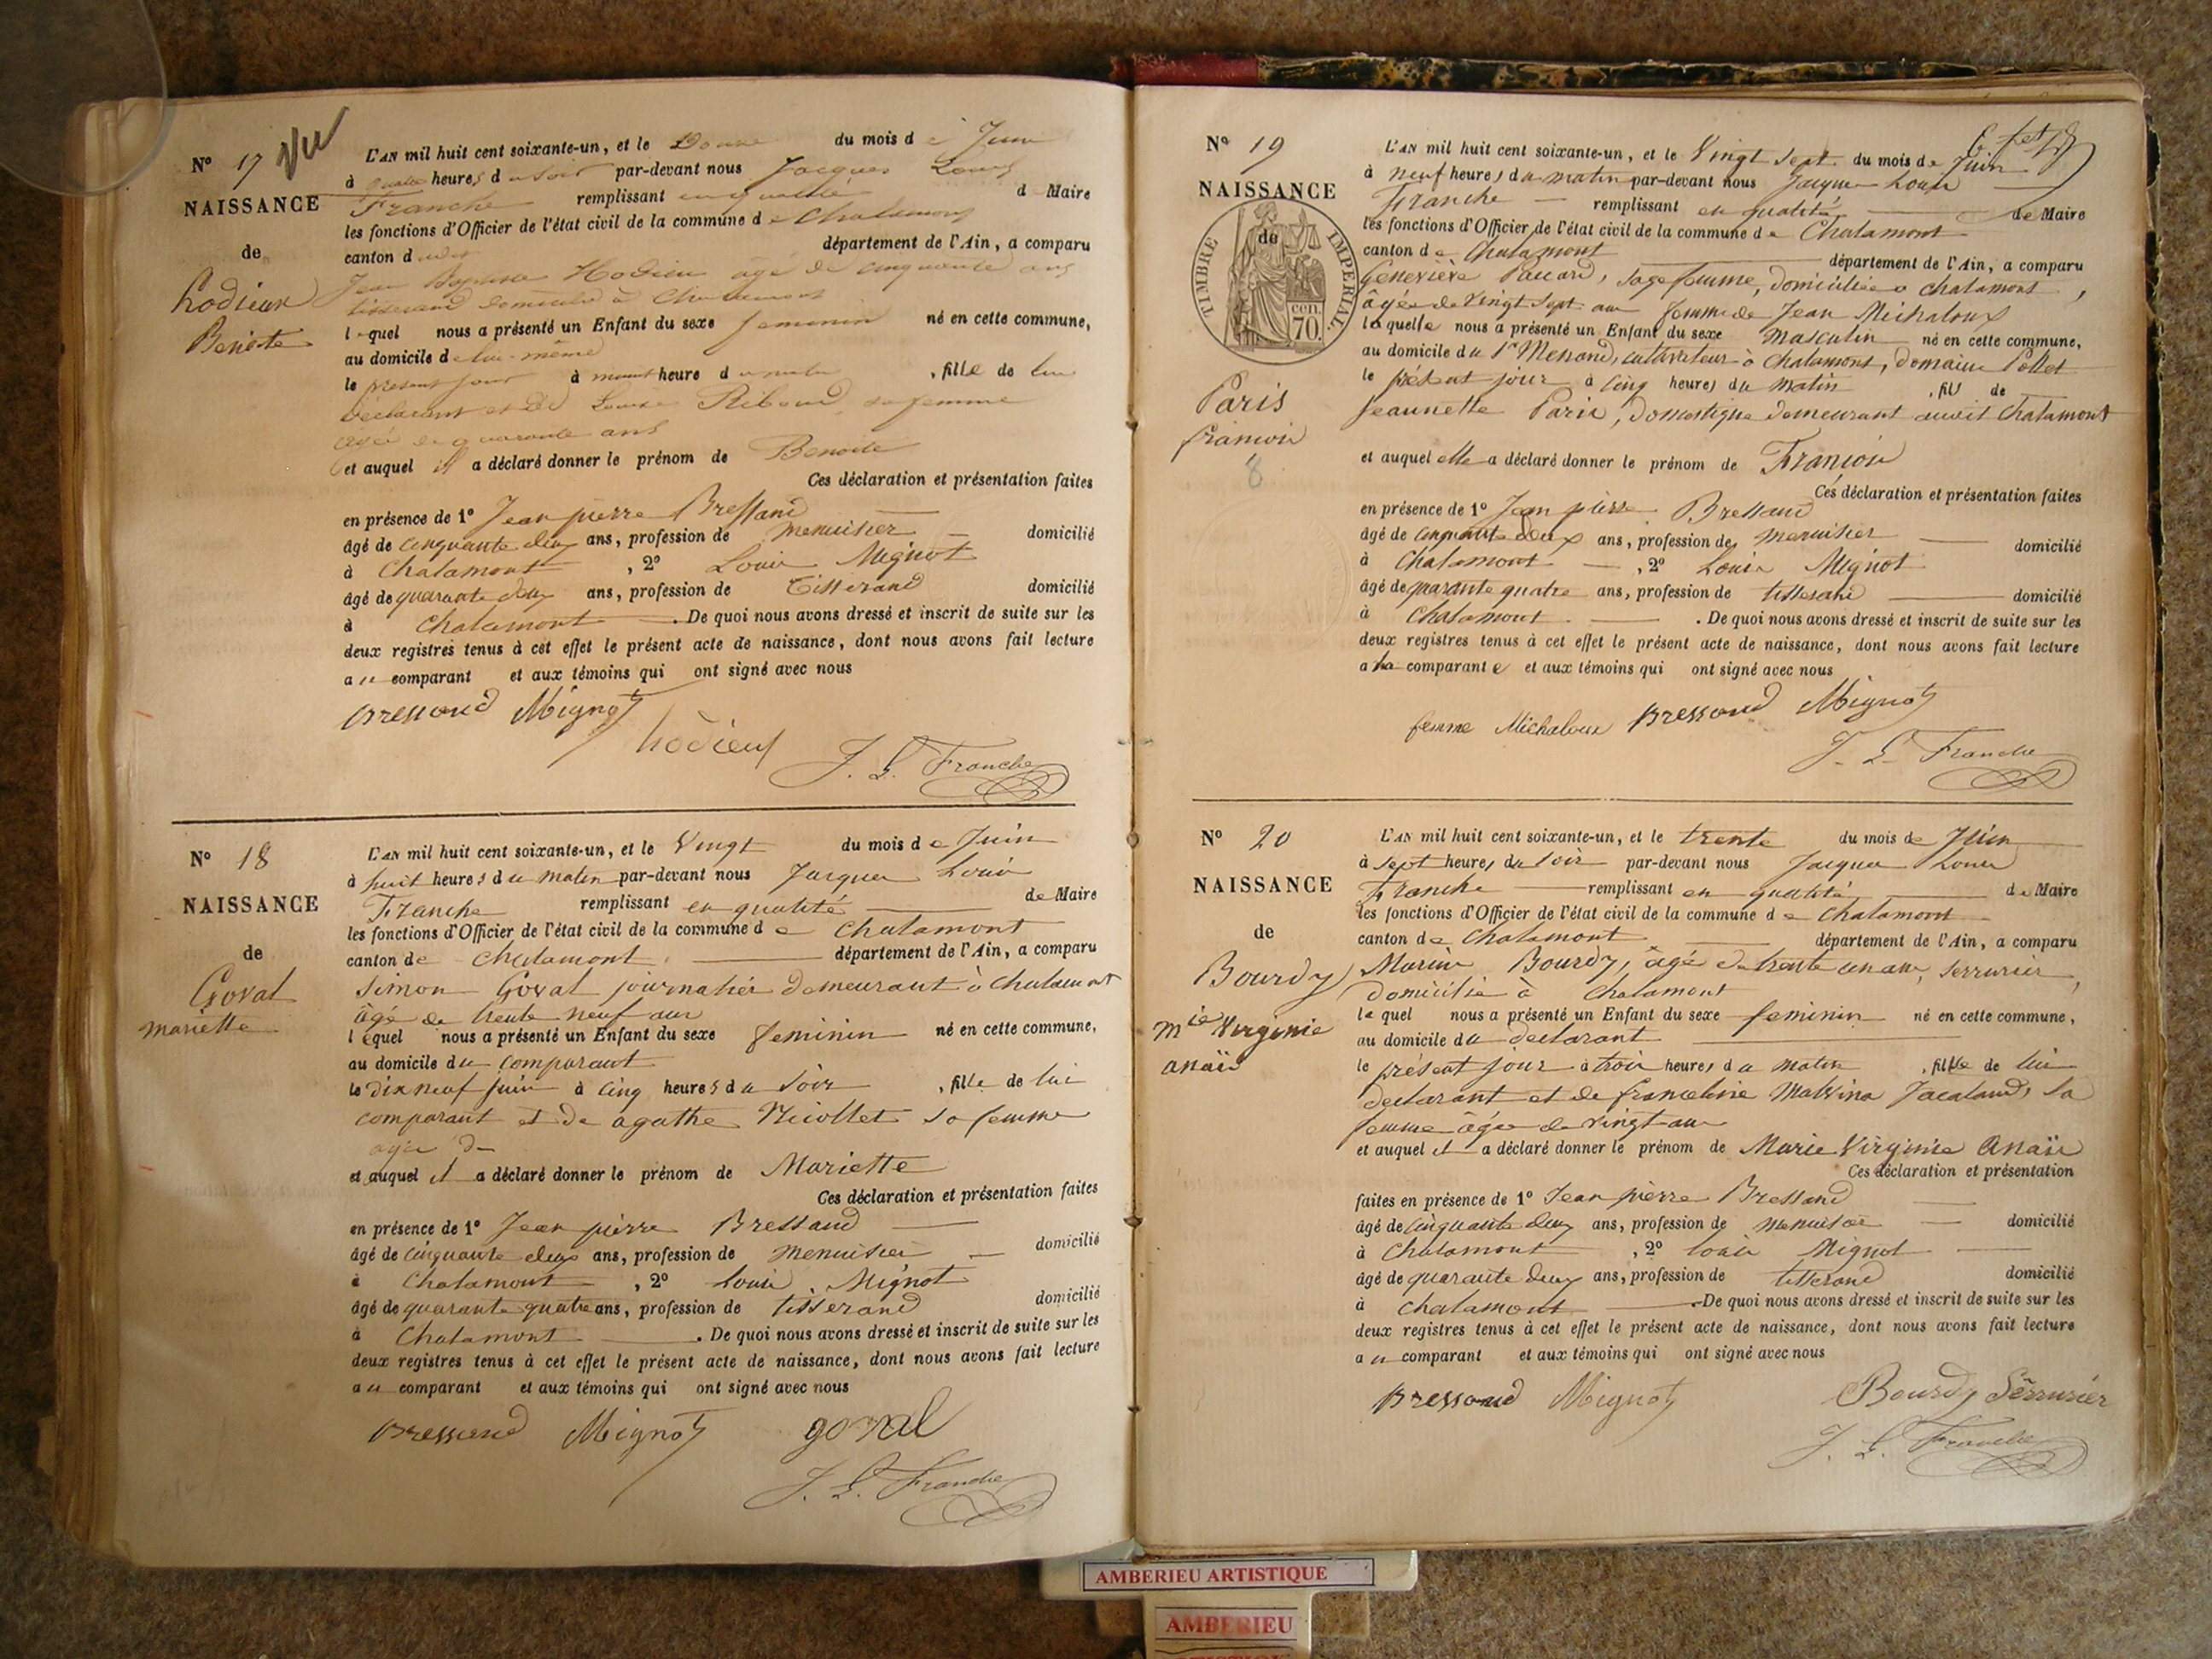 N° 17 Vu
NAISSANCE
de
hodieux
Benoite
L'AN mil huit cent soixante-un, et le Douze du mois de Juin
à quatre heures du soir par-devant nous Jacques Louis
Franche remplissant en qualité d Maire
les fonctions d'Officier de l'état civil de la commune de Chalamont
canton dudit département de l'Ain, a comparu
Jean Baptiste Hodieu âgé de cinquante ans
tisserand domicilié à Chalamont
lequel nous a présenté un Enfant du sexe feminin né en cette commune,
au domicile de lui-même
le présent jour à heure du , fille de lui
déclarant et de Louise Riboud sa femme
agée de quarante ans
et auquel il a déclaré donner le prénom de Benoite
Ces déclaration et présentation faites
en présence de 1° Jean pierre Bressand
âgé de cinquante deux ans, profession de menuisier domicilié
à Chalamont , 2° Louis Mignot
âgé de quarante deux ans, profession de Tisserand domicilié
à Chalamont . De quoi nous avons dressé et inscrit de suite sur les
deux registres tenus à cet effet le présent acte de naissance, dont nous avons fait lecture
au comparant et aux témoins qui ont signé avec nous
Bressand Mignot
hodieux J. L. Franche
N° 18
NAISSANCE
de
Goval
mariette
L'AN mil huit cent soixante-un, et le Vingt du mois de Juin
à huit heures du matin par-devant nous Jacques Louis
Franche remplissant en qualité de Maire
les fonctions d'Officier de l'état civil de la commune de Chalamont
canton de Chalamont département de l'Ain, a comparu
Simon Goval journalier demeurant à Chalamont
âgé de trente neuf ans
lequel nous a présenté un Enfant du sexe feminin né en cette commune,
au domicile du comparant
le dix neuf juin à cinq heures du soir , fille de lui
comparant et de agathe Nicollet sa femme
agée de
et auquel il a déclaré donner le prénom de Mariette
Ces déclaration et présentation faites
en présence de 1° Jean pierre Bressand
âgé de cinquante deux ans, profession de menuisier domicilié
à Chalamont , 2° louis Mignot
âgé de quarante quatre ans, profession de tisserand domicilié
à Chalamont . De quoi nous avons dressé et inscrit de suite sur les
deux registres tenus à cet effet le présent acte de naissance, dont nous avons fait lecture
au comparant et aux témoins qui ont signé avec nous
Bressand Mignot goval
J. L. Franche
N° 19
NAISSANCE
de
TIMBRE IMPERIAL
70 cen.
Paris
françois
8
L'AN mil huit cent soixante-un, et le Vingt sept du mois de Juin
à neuf heures du matin par-devant nous Jacques Louis
Franche remplissant en qualité de Maire
les fonctions d'Officier de l'état civil de la commune de Chalamont
canton de Chalamont département de l'Ain, a comparu
Geneviève Paccard, sage femme, domiciliée à chalamont,
âgée de vingt sept ans femme de Jean Michaloux
laquelle nous a présenté un Enfant du sexe masculin né en cette commune,
au domicile du Sr Messand, cultivateur à chalamont, domaine Pollet
le présent jour à cinq heures du matin , fils de
Jeannette Paris, domestique demeurant audit Chalamont
et auquel elle a déclaré donner le prénom de François
Ces déclaration et présentation faites
en présence de 1° Jean pierre Bressand
âgé de cinquante deux ans, profession de menuisier domicilié
à Chalamont , 2° Louis Mignot
âgé de quarante quatre ans, profession de tisserand domicilié
à Chalamont . De quoi nous avons dressé et inscrit de suite sur les
deux registres tenus à cet effet le présent acte de naissance, dont nous avons fait lecture
a la comparante et aux témoins qui ont signé avec nous
femme Michaloux Bressand Mignot
J. L. Franche
N° 20
NAISSANCE
de
Bourdy
Mie Virginie
anaïs
L'AN mil huit cent soixante-un, et le trente du mois de Juin
à sept heures du soir par-devant nous Jacques Louis
Franche remplissant en qualité de Maire
les fonctions d'Officier de l'état civil de la commune de Chalamont
canton de Chalamont département de l'Ain, a comparu
Marin Bourdy, âgé de trente un ans, serrurier,
domicilié à Chalamont
lequel nous a présenté un Enfant du sexe feminin né en cette commune,
au domicile du declarant
le présent jour à trois heures du matin , fille de lui
declarant et de franceline Malvina Jacaland, sa
femme âgée de vingt ans
et auquel il a déclaré donner le prénom de Marie Virginie Anaïs
Ces déclaration et présentation
faites en présence de 1° Jean pierre Bressand
âgé de cinquante deux ans, profession de menuisier domicilié
à Chalamont , 2° louis Mignot
âgé de quarante deux ans, profession de tisserand domicilié
à Chalamont . De quoi nous avons dressé et inscrit de suite sur les
deux registres tenus à cet effet le présent acte de naissance, dont nous avons fait lecture
au comparant et aux témoins qui ont signé avec nous
Bressand Mignot Bourdy Serrurier
J. L. Franche
AMBERIEU ARTISTIQUE
AMBERIEU